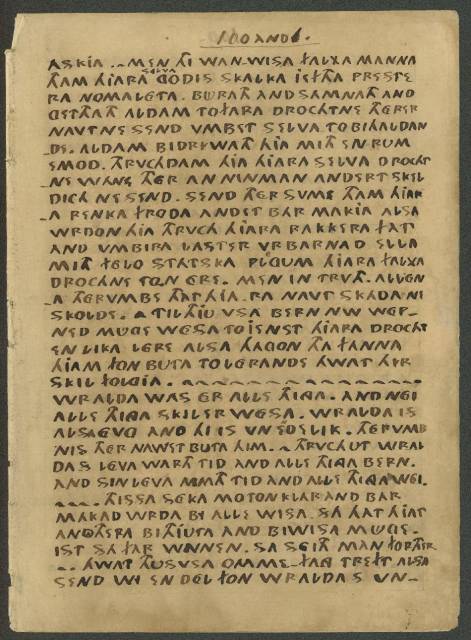 100 AND 1.
ASKIA .. MEN HI WAN.WISA FALXA MANNA
THAM HIARA SELVA GODIS SKALKA IEFTHA PRESTE
RA NOMATH LETA. BURAR AND SAMNATH AND
ALDAM TO FARA DROCHTNE THERER
NAVT NE SEND VMBE SELVA TO BIHALDAN
DE. ALDAM BIDRYWATH HIA MITH EN RUM
EMOD. THRUCHDAM HIA HIARA SELVA DROCHT
NE WANE THER AN NINMAN ANDERT SKIL
DICH NE SEND. SEND THER SUME THAM HIAR
A RENKA FRODA ANDET BAR MAKIA ALSA
WRDON HIA THRUCH HIARA RAKKERA FAT
AND UMBIRA LASTER VRBARNAD ELLA
MITH FELO STATSKA PLGUM HIARA FALXA
DROCHNE TO'N ERE. MEN IN TRVTH. ALLEN
A THERVMBE THAT HIA. RA NAVT SKADA NE
SKOLDE. ~ TIL THIU VSA BERN NW WEP-
NED MUGE WESA TOIENST HIARA DROCHT
ENLIKA LERE ALSA HAGON THA FANNA
HIAM FON BUTA TO LERANDE HWAT HIR
SKIL FOLGIA. ~
WRALDA WAS ER ALLE THINGA. AND NEI
ALLE THINGA SKIL ER WESA. WRALDA IS
ALSA EVG AND HI IS VNENDELIK. THERVMB
NIS THER NAWET BUTA HIM. ~ THRUCH UT WRAL
DA.S LEVA WARTH TID AND ALLE THINGA BERN.
AND SIN LEVA NIMATH TID AND ALLE THINGA WEI.
~ THISSA SEKA MOTON KLAR AND BAR
MAKAD WRDA BY ALLE WISA. SA THAT HIAT
AN OTHERA BITHIUTA AND BIWISA MUGE.
IST SA FAR WNNEN. SA SEITH MAN FORTHER
.. HWAT THUS VSA OMME-FANG TREFT ALSA
SEND WI EN DEL FON WRALDA.S UN-